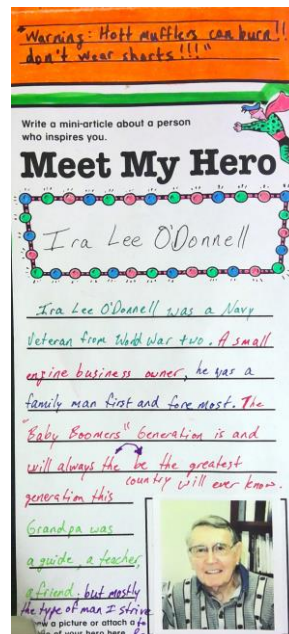 "Warning: Hott mufflers can burn!!
don't wear shorts!!!"
Write a mini-article about a person
who inspires you.
Meet My Hero
Ira Lee O'Donnell
Ira Lee O'Donnell was a Navy
Veteran from World War two. A small
engine business owner, he was a
family man first and fore most. The
"Baby Boomers" Generation is and
will always the be the greatest
generation this country will ever know.
Grandpa was
a guide, a teacher,
a friend. but mostly
the type of man I strive
to
draw a picture or attach a
of your hero here